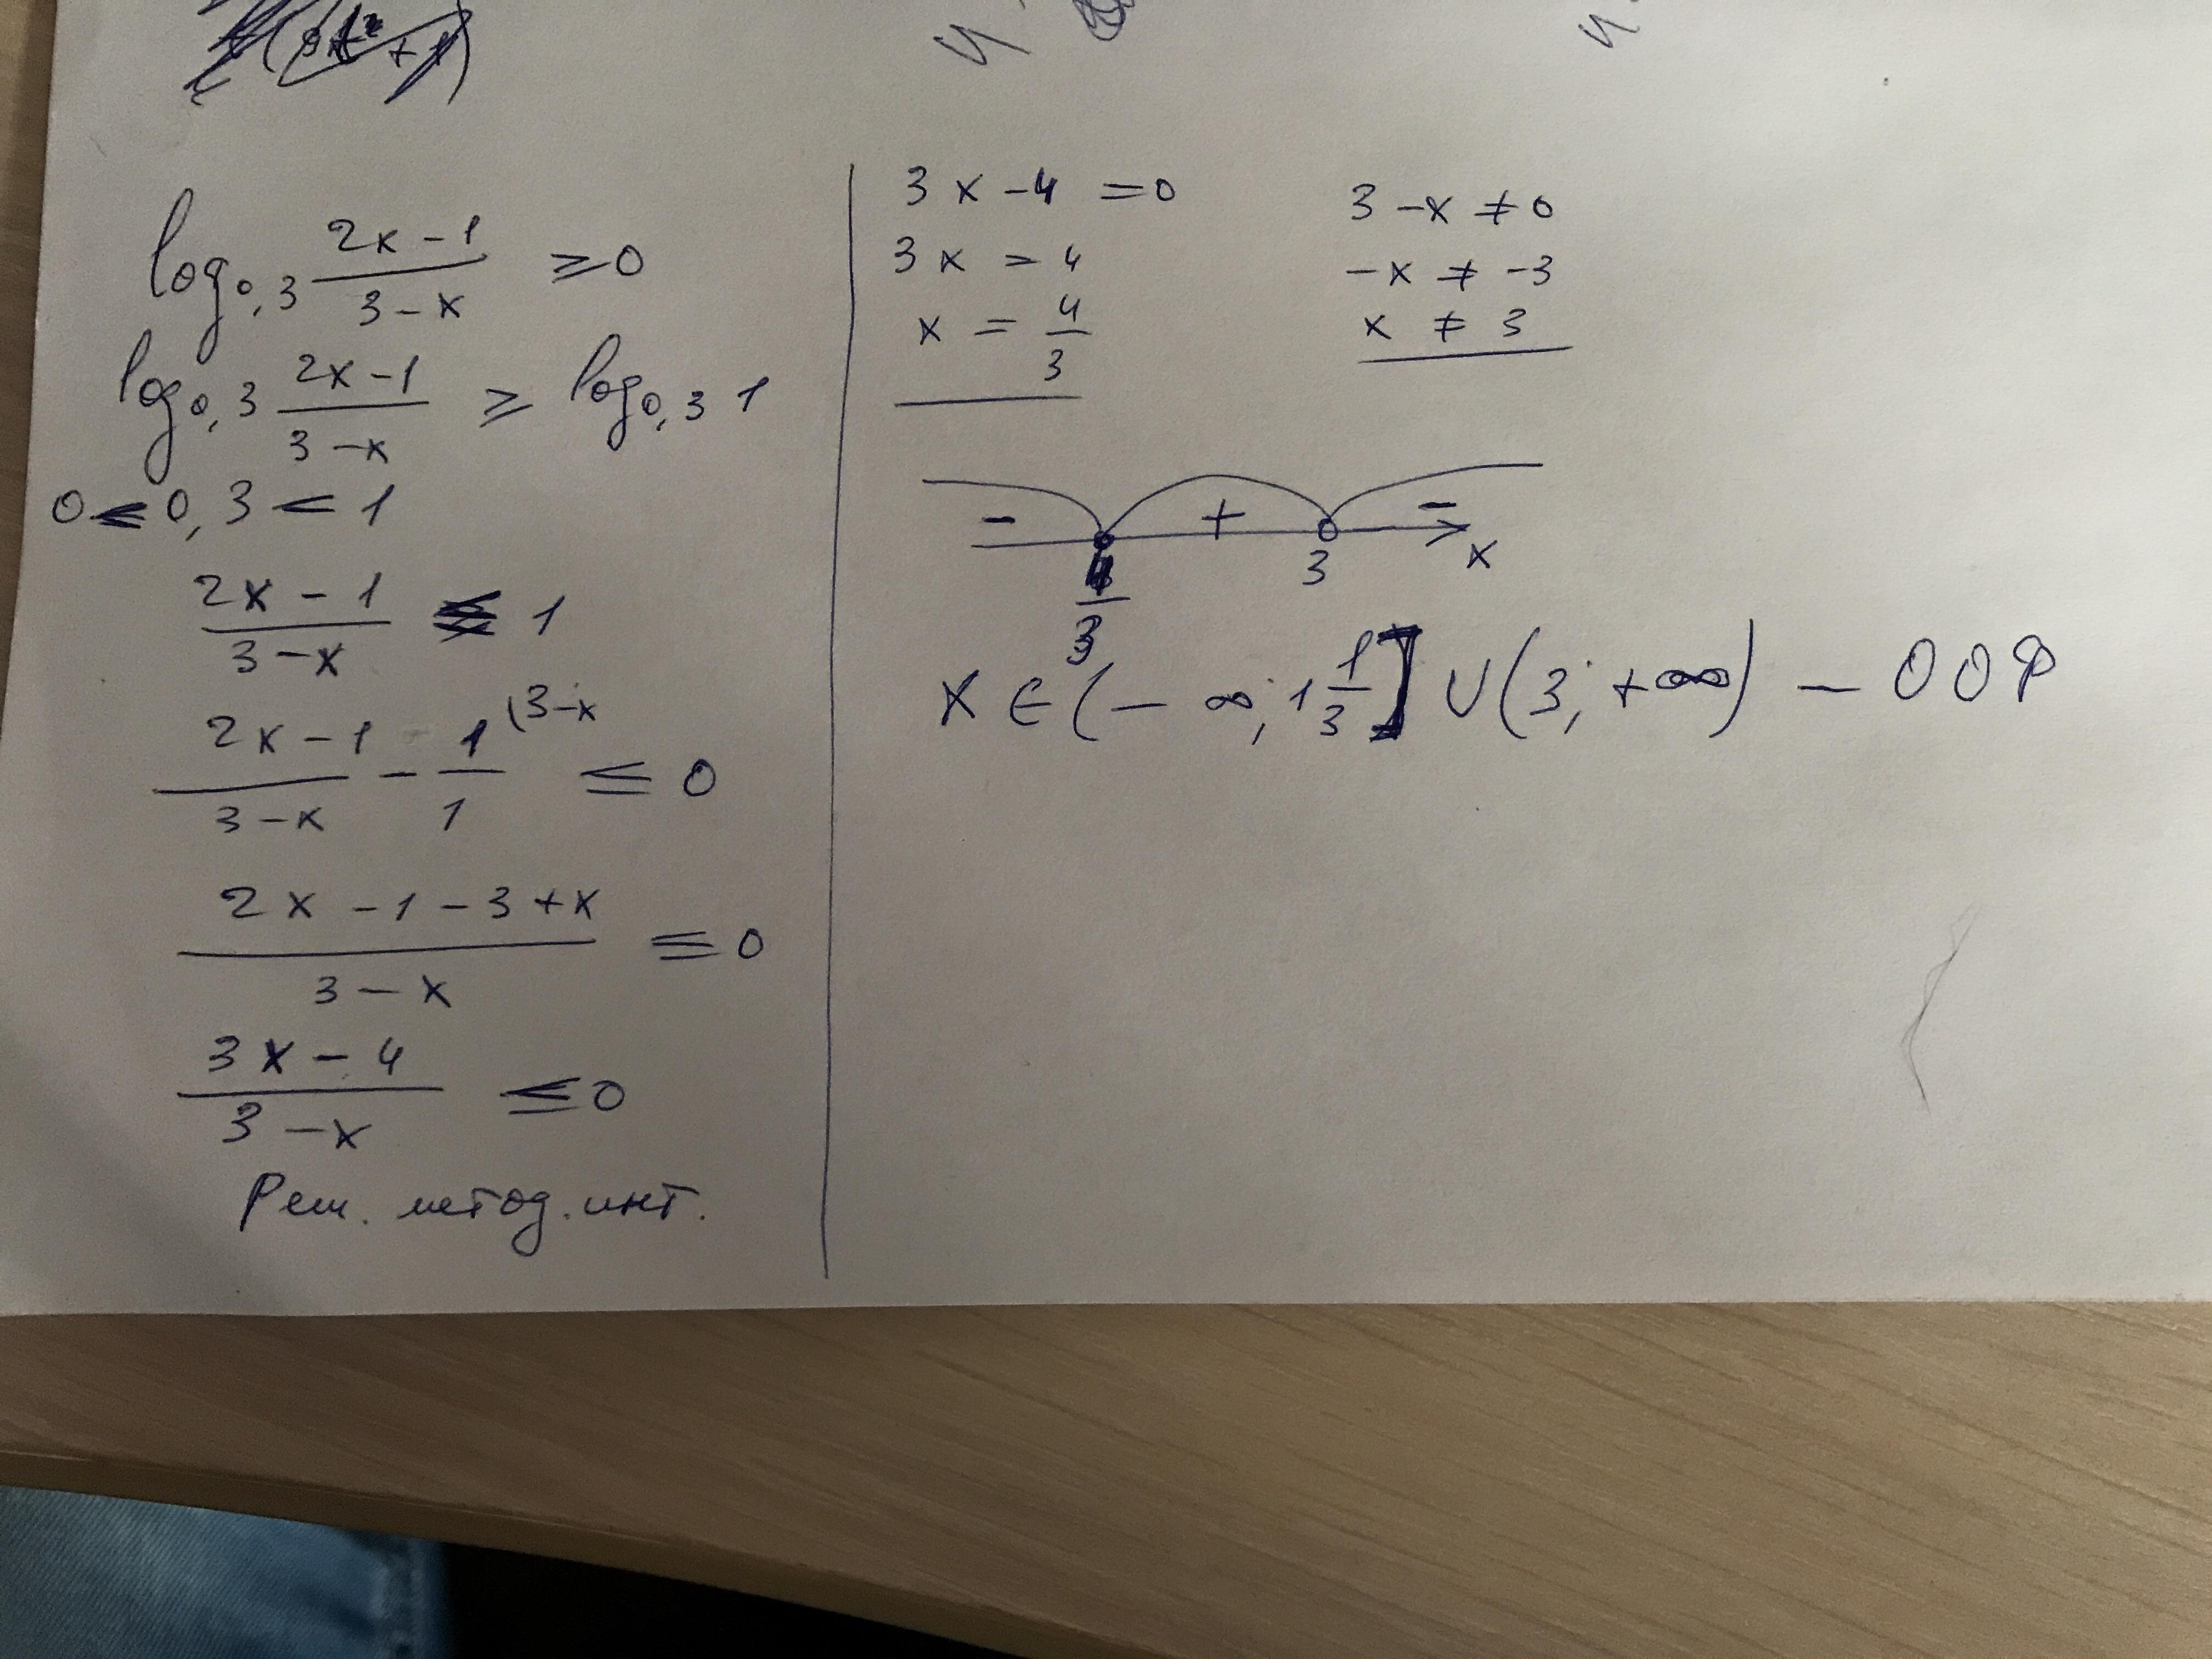 log₀,₃ (2x-1)/(3-x) ≥ 0
log₀,₃ (2x-1)/(3-x) ≥ log₀,₃ 1
0 < 0,3 < 1
(2x-1)/(3-x) ≤ 1
(2x-1)/(3-x) - 1/1 (3-x ≤ 0
(2x-1-3+x)/(3-x) ≤ 0
(3x-4)/(3-x) ≤ 0
Реш. метод. инт.
3x-4 = 0
3x = 4
x = 4/3
3-x ≠ 0
-x ≠ -3
x ≠ 3
- + -
4/3 3 x
x ∈ (-∞; 1 1/3] ∪ (3; +∞) — ООФ